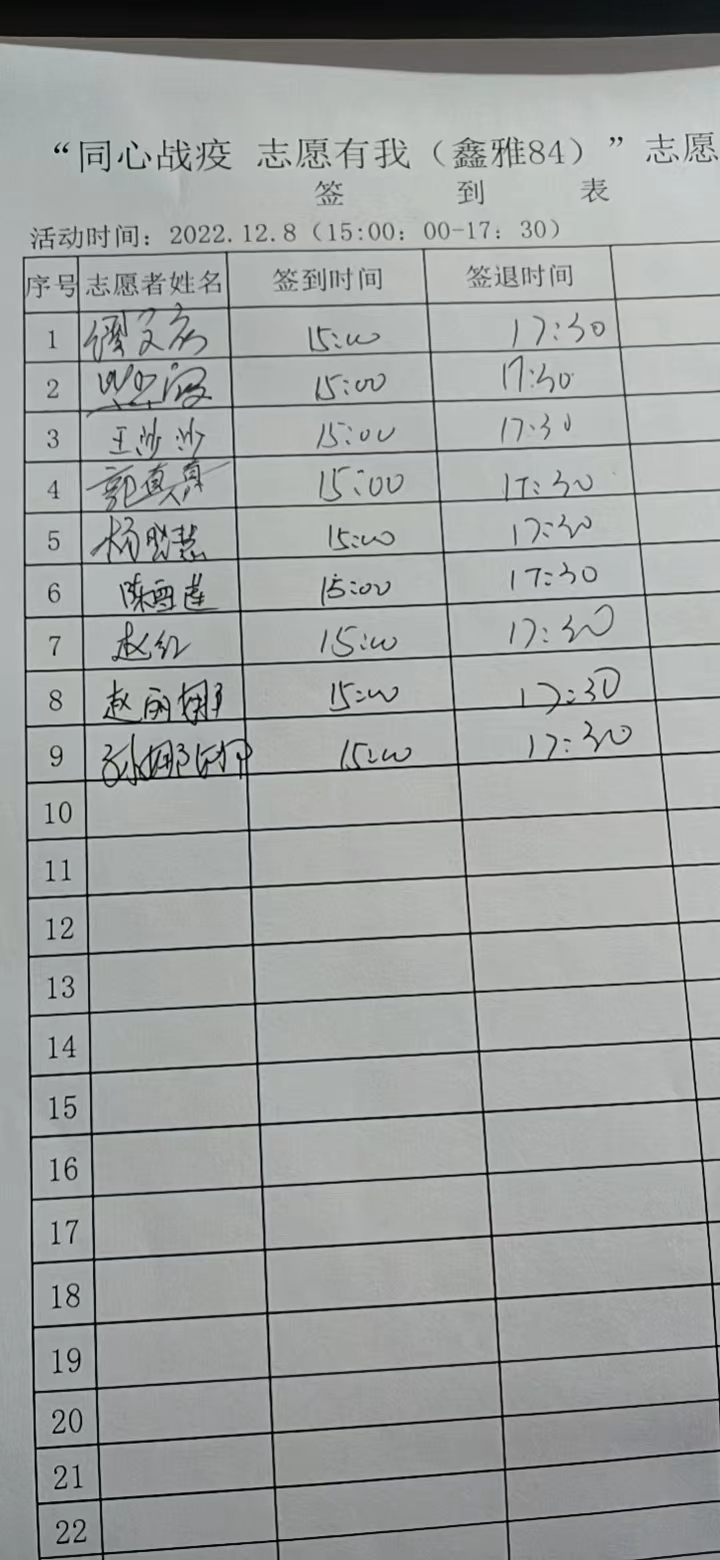 “同心战疫 志愿有我（鑫雅84）”志愿
签 到 表
活动时间：2022.12.8（15:00：00-17：30）
序号 志愿者姓名 签到时间 签退时间
1 15:00 17:30
2 15:00 17:30
3 王沙沙 15:00 17:30
4 郭真真 15:00 17:30
5 杨晓慧 15:00 17:30
6 陈雪莲 15:00 17:30
7 赵红 15:00 17:30
8 赵丽娜 15:00 17:30
9 孙娜娜 15:00 17:30
10
11
12
13
14
15
16
17
18
19
20
21
22